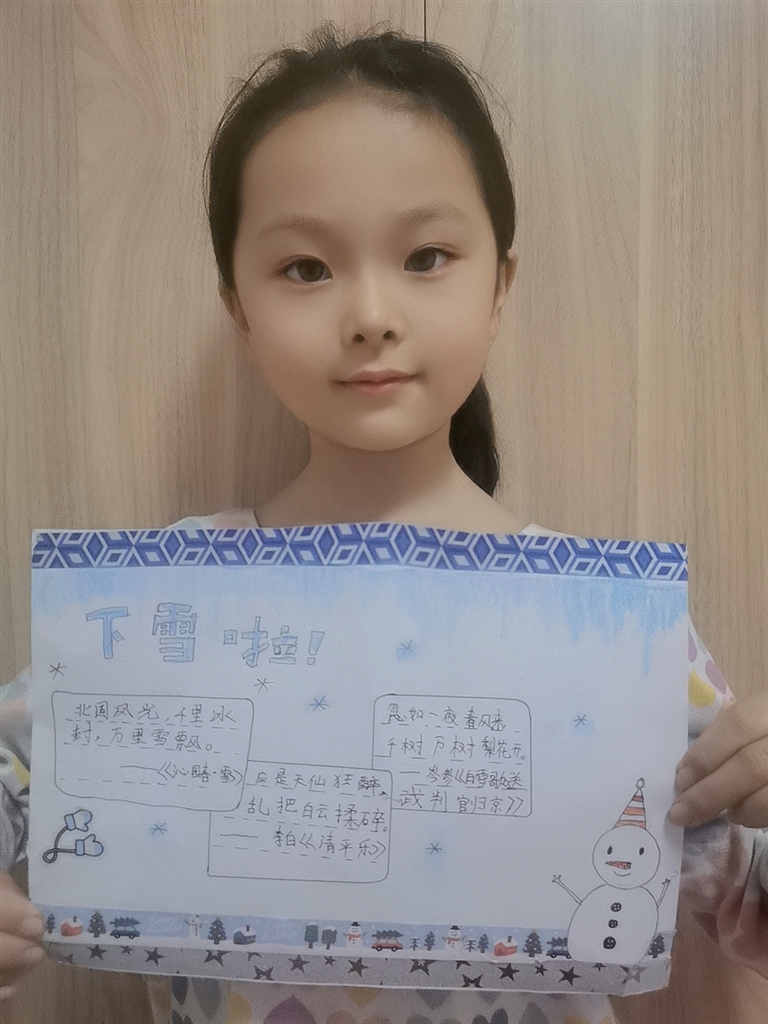 下雪啦!
北国风光,千里冰
封,万里雪飘。
——《沁园春·雪》
应是天仙狂醉。
乱把白云揉碎。
——李白《清平乐》
忽如一夜春风来
千树万树梨花开。
——岑参《白雪歌送
武判官归京》